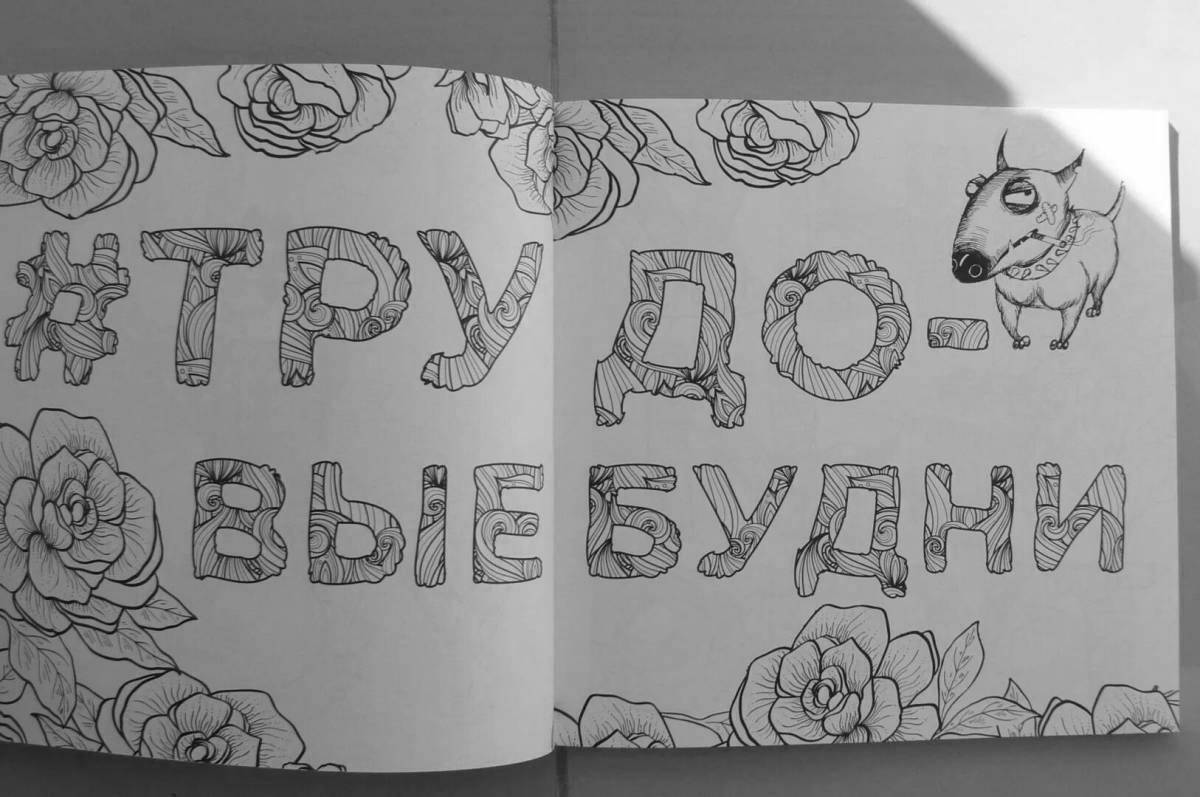 #ТРУДО-
ВЫЕ БУДНИ